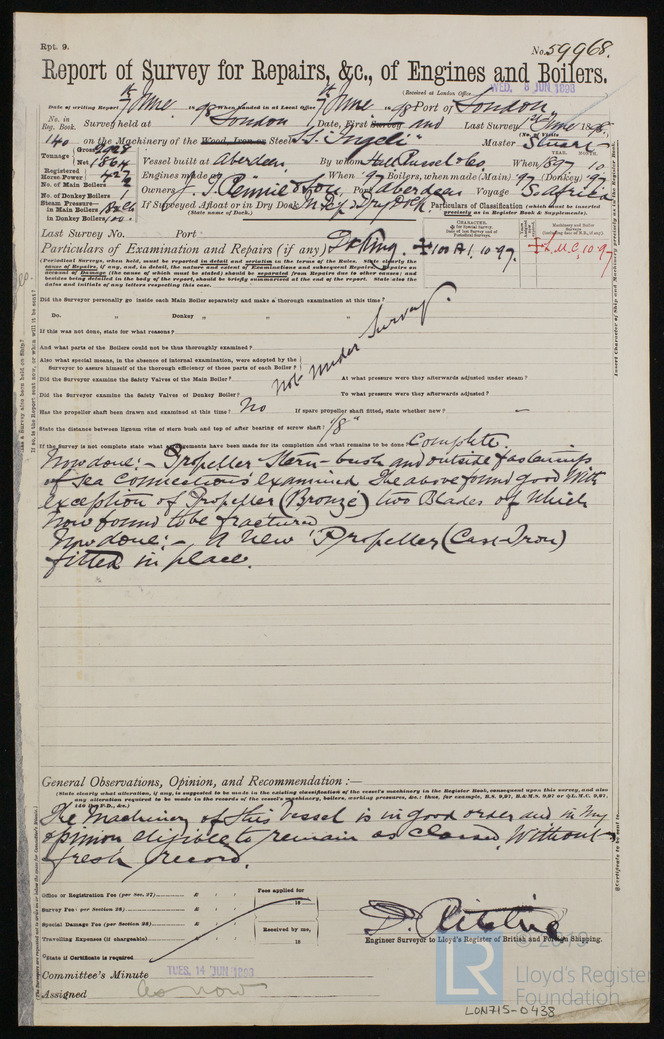 Rpt. 9.
No. 59968.
Report of Survey for Repairs, &c., of Engines and Boilers.
(Received at London Office WED. 8 JUN 1898
Date of writing Report 7th June 1898 When handed in at Local Office 7th June 1898 Port of London
No. in Reg. Book. Survey held at London Date, First Survey and Last Survey 1st June 1898.
(No. of Visits
140 on the Machinery of the Wood, Iron or Steel S.S. Ingeli Master Stuart
Tonnage Gross 2928 Net 1864 Vessel built at Aberdeen By whom Hall Russel & Co When 1897 10
YEAR. MONTH.
Registered Horse Power 427 Engines made at When '97 Boilers, when made (Main) '97 (Donkey) '97
No. of Main Boilers 2
No. of Donkey Boilers Owners J. T. Rennie & Son Port Aberdeen Voyage S. Africa
Steam Pressure in Main Boilers If Surveyed Afloat or in Dry Dock Dry Dock.
(State name of Dock.)
in Donkey Boilers
Particulars of Classification (which must be inserted precisely as in Register Book & Supplements).
Last Survey No. Port
Particulars of Examination and Repairs (if any) Docking. 100 A1. 10.97. L.M.C. 10.97
(Periodical Surveys, when held, must be reported in detail and seriatim in the terms of the Rules. State clearly the cause of Repairs, if any, and, in detail, the nature and extent of Examinations and subsequent Repairs. Repairs on account of Damage (the cause of which must be stated) should be separated from Repairs due to other causes; and besides being detailed in the body of the report, should be briefly summarised at the end of the report. State also the dates and initials of any letters respecting this case.
Did the Surveyor personally go inside each Main Boiler separately and make a thorough examination at this time?
Do. „ Donkey „ „ „
If this was not done, state for what reasons?
And what parts of the Boilers could not be thus thoroughly examined?
Also what special means, in the absence of internal examination, were adopted by the Surveyor to assure himself of the thorough efficiency of those parts of each Boiler?
not under Survey.
Did the Surveyor examine the Safety Valves of the Main Boiler? At what pressure were they afterwards adjusted under steam?
Did the Surveyor examine the Safety Valves of Donkey Boiler? To what pressure were they afterwards adjusted?
Has the propeller shaft been drawn and examined at this time? No If spare propeller shaft fitted, state whether new? —
State the distance between lignum vitæ of stern bush and top of after bearing of screw shaft? 1/8"
If the Survey is not complete state what arrangements have been made for its completion and what remains to be done Complete.
Now done:- Propeller Stern-bush and outside fastenings
of Sea Connections examined. The above found good with
exception of Propeller (Bronze) two Blades of which
now found to be fractured
Now done:- A new Propeller (Cast-Iron)
fitted in place.
General Observations, Opinion, and Recommendation:—
(State clearly what alteration, if any, is suggested to be made in the existing classification of the vessel's machinery in the Register Book, consequent upon this survey, and also any alteration required to be made in the records of the vessel's machinery, boilers, working pressures, &c.: thus, for example, B.S. 9,97, B.&M.S. 9,97 or L.M.C. 9,97, 140 lb., F.D., &c.)
The Machinery of this vessel is in good order and in my
opinion eligible to remain as classed, without
fresh record.
Office or Registration Fee (per Sec. 27) £ : :
Survey Fee (per Section 28) £ : :
Special Damage Fee (per Section 28) £ : :
Travelling Expenses (if chargeable) £ : :
State if Certificate is required
Fees applied for
18
Received by me,
18
D. Ritchie
Engineer Surveyor to Lloyd's Register of British and Foreign Shipping.
Committee's Minute TUES. 14 JUN 1898
Assigned as now
© 2019
LR Lloyd's Register
Foundation
LON715-0438